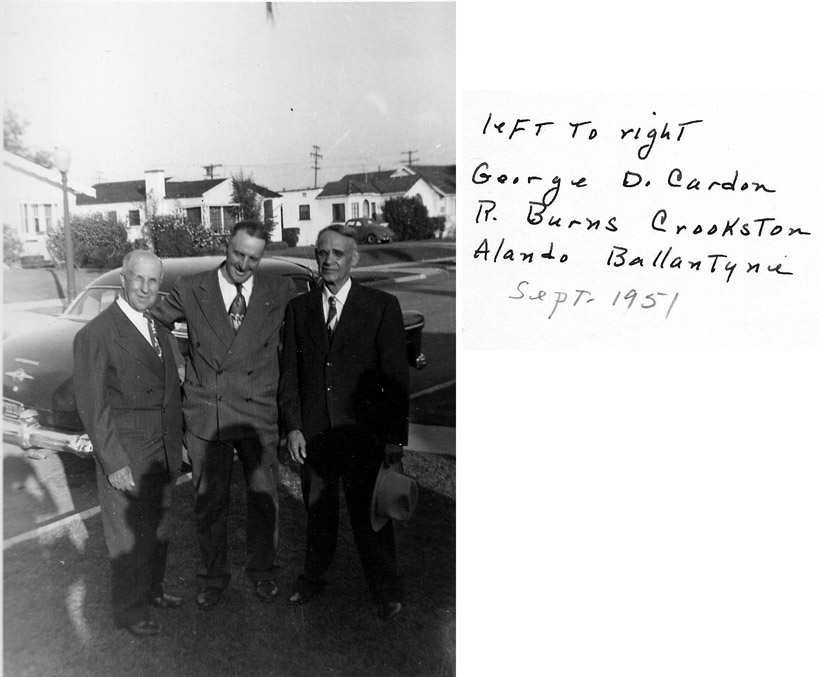 left to right
George D. Cardon
R. Burns Crookston
Alando Ballantyne
Sept. 1951